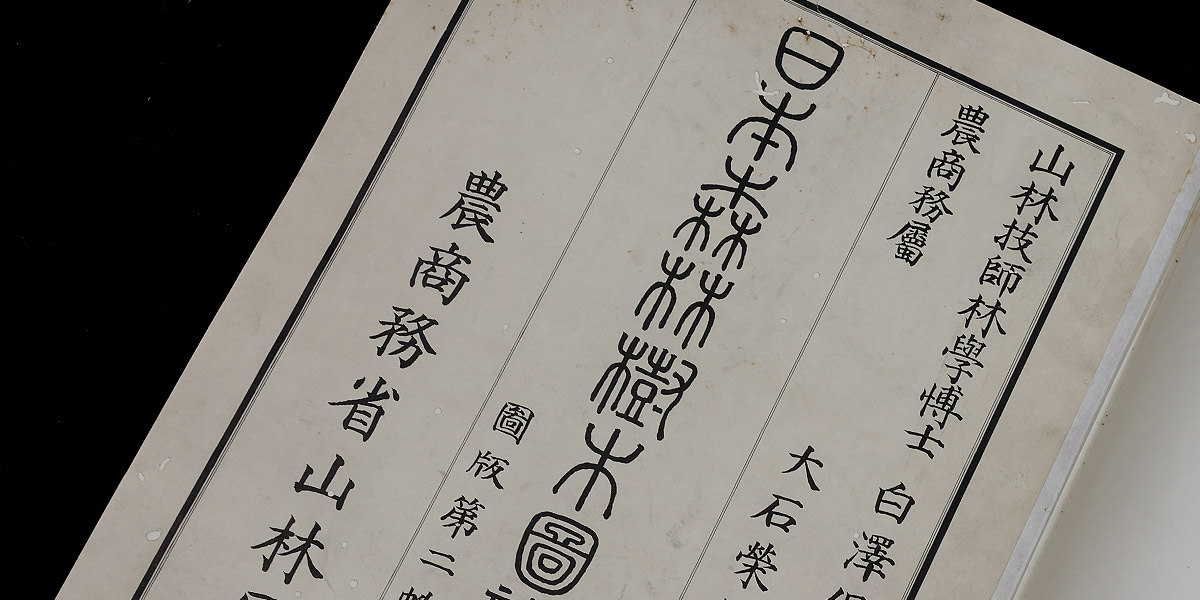 山林技師林學博士 白澤
農商務屬 大石榮
日本森林樹木圖
圖版第二
農商務省山林